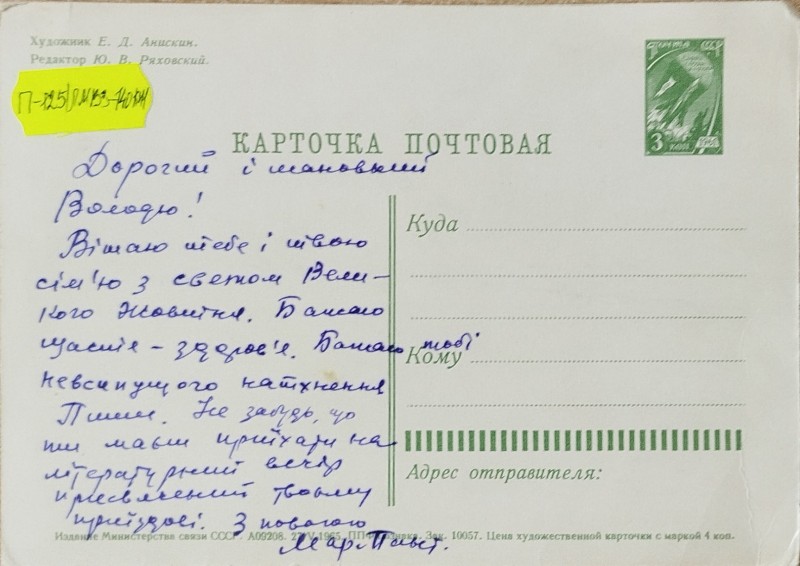 Художник Е. Д. Анискин.
Редактор Ю. В. Ряховский.
КАРТОЧКА ПОЧТОВАЯ
Дорогий і шановний
Володю!
Вітаю тебе і твою
сім'ю з святом Вели-
кого Жовтня. Бажаю
щастя - здоров'я. Бажаю тобі
невсипущого натхнення
Пиши. Не забудь, що
ти маєш приїхати на
літературний вечір
присвячений твоєму
приїздові. З повагою
Мар.
Куда
Кому
Адрес отправителя:
Издание Министерства связи СССР. А09208. 1965. Зак. 10057. Цена художественной карточки с маркой 4 коп.